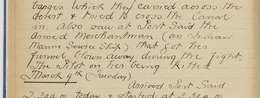 barges which they carried across the
desert & tried to cross the Canal
in. Also saw at Port Said the
Armed Merchantman (an Indian
Marine Service Ship) that got her
funnels blown away during the fight.
The Pilot on her being killed
March 9th (Tuesday)
Arrived Port Said
2.30 a. today & started at 7.30 a.